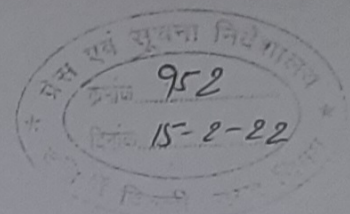 * प्रेस एवं सूचना निदेशालय *
क्रमांक 952
दिनांक 15-2-22